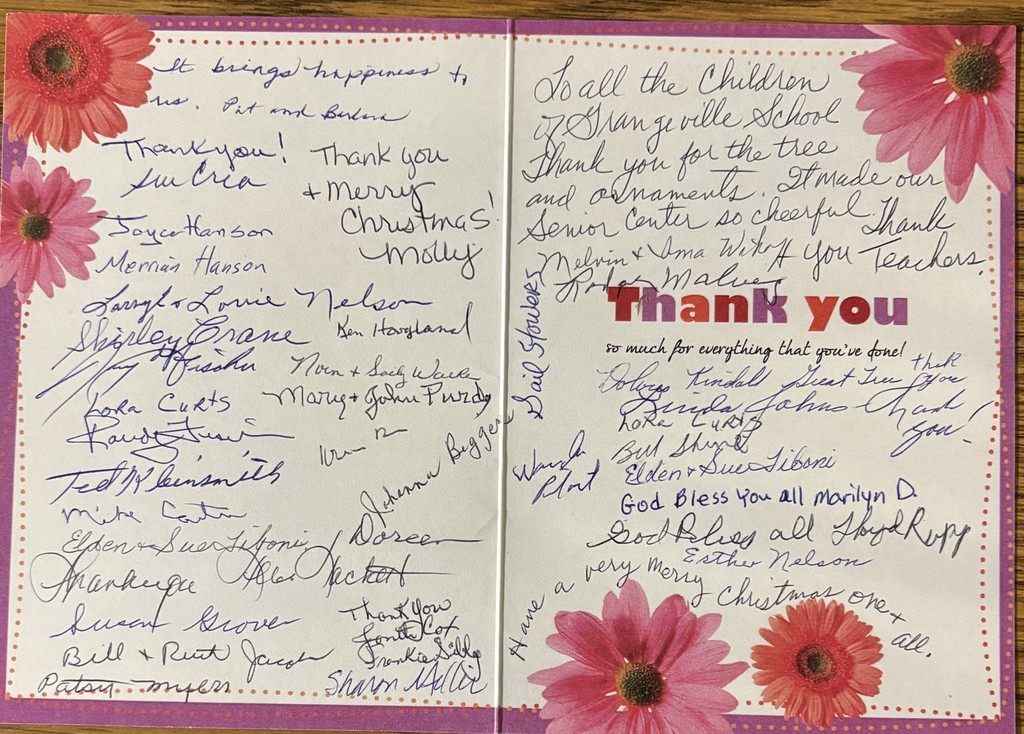 It brings happiness to
us. Pat and Barbara
Thank you!
Sue Cria
Thank you
+ Merry
Christmas!
Molly
Joyce Hanson
Merrian Hanson
Larryl + Lorrie Nelson
Shirley Crane
Ken Hoogland
Norm + Sally
Mary + John Purdy
Lora Curts
Randy
Ted Kleinsmith
Johanna Beggere
Mike
Elden + Sue Tiboni
Doreen
Thank you Allen
Susan Grover
Thank You
Cox
Frankie
Bill + Ruth Jacobs
Patsy Myers
Sharon
To all the Children
of Grangeville School
Thank you for the tree
and ornaments. It made our
Senior Center so cheerful. Thank
you Teachers.
Melvin + Uma
Gail Stowers
Thank you
so much for everything that you've done!
Dolores Kindall Great Tree thank you
Linda Johns Thank you!
Lora Curts
Bill
Wanda
Elden + Sue Tiboni
God Bless You all Marilyn D.
God Bless all Lloyd Rupp
Esther Nelson
Have a very merry Christmas one + all.